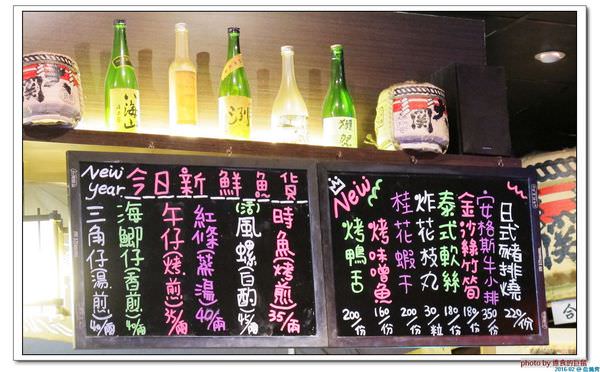 八海山
獺祭
New year
今日新鮮魚貨
時魚(烤煎) 35/兩
(活)風螺(白酌) 4/兩
紅條(蒸湯) 40/兩
午仔(烤煎) 35/兩
海鯽仔(香煎) 40/兩
三角仔(湯煎) 40/兩
New
日式豬排燒 220/份
安格斯牛小排 350/份
金沙綠竹筍 180/份
泰式軟絲 180/份
炸花枝丸 30/粒
桂花蝦干 200/份
烤味噌魚 160/份
烤鴨舌 200/份
合
photo by 進食的巨貓